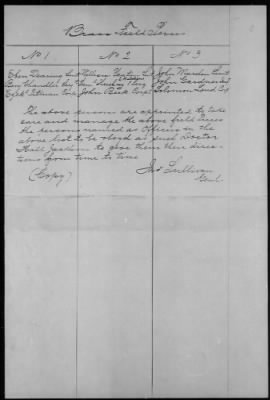 Brass Field Pieces
No 1 No 2 No 3
Eben Dearing Lieut William Lieut John Marden Lieut
Benj Chandler Serg Serg John Gardner Serg
Corp John Beck Corpl Solomon Corpl
The above persons are appointed to take
care and manage the above field Pieces
the persons named as Officers in the
above list to be obeyed as such Doctor
Hall Jackson to give them their direc-
tions from time to time
(Copy) Jno Sullivan
Genl.